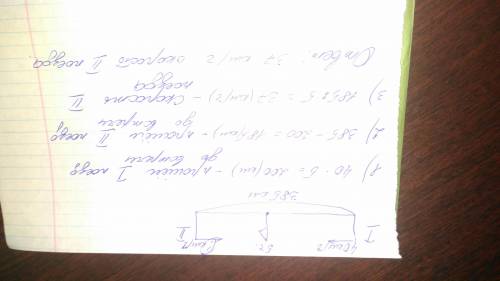 I II
40 км/ч 5 ч. км/ч
385 км
1) 40 · 5 = 200 (км) - прошёл I поезд
до встречи
2) 385 - 200 = 185 (км) - прошёл II поезд
до встречи
3) 185 : 5 = 37 (км/ч) - скорость II
поезда
Ответ: 37 км/ч скорость II поезда.